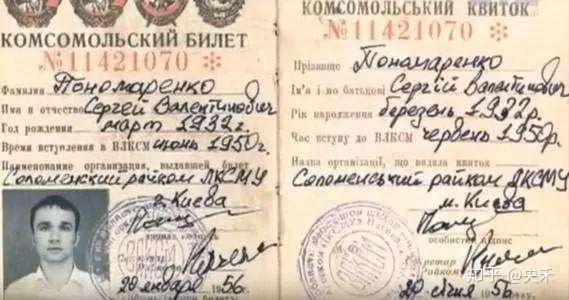 КОМСОМОЛЬСКИЙ БИЛЕТ
№11421070
Фамилия Пономаренко
Имя и отчество Сергей Валентинович
Год рождения март 1932г.
Время вступления в ВЛКСМ июнь 1950г.
Наименование организации, выдавшей билет
Соломенский райком ЛКСМУ
г. Киева
28 января 1956г.
КОМСОМОЛЬСЬКИЙ КВИТОК
№11421070
Прізвище Пономаренко
Ім'я і по батькові Сергій Валентинович
Рік народження березень 1932р.
Час вступу до ВЛКСМ червень 1950р.
Назва організації, що видала квиток
Соломенський райком ЛКСМУ
м. Києва
особистий підпис
січня 56
知乎 @央禾